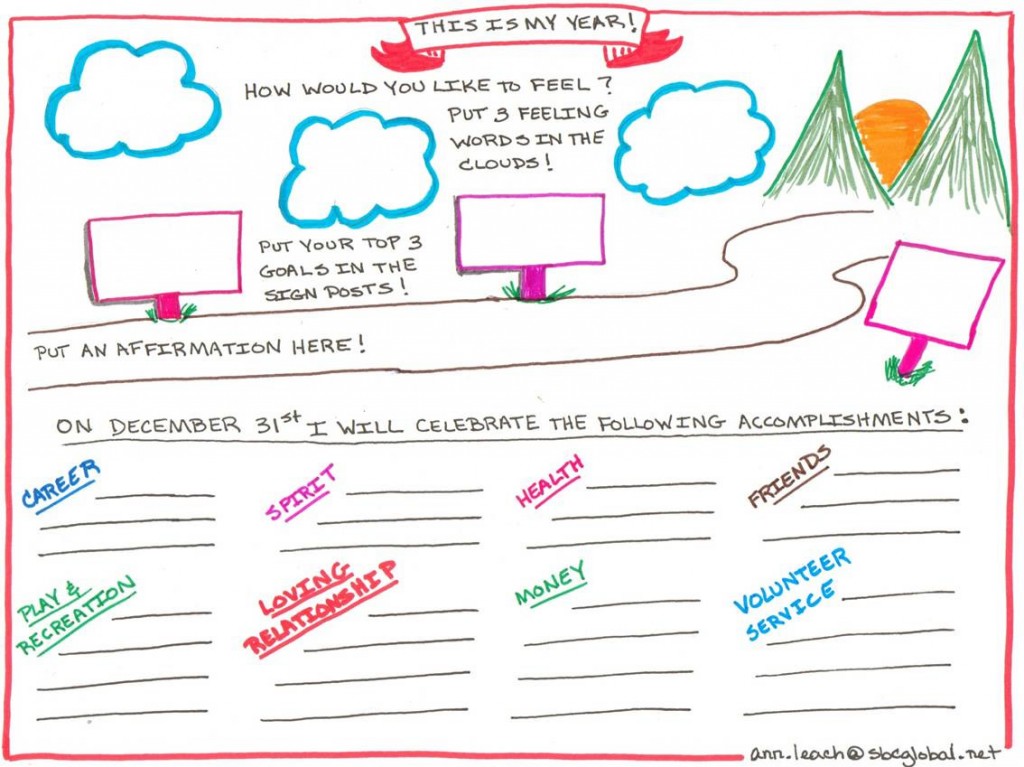 THIS IS MY YEAR!
HOW WOULD YOU LIKE TO FEEL?
PUT 3 FEELING
WORDS IN THE
CLOUDS!
PUT YOUR TOP 3
GOALS IN THE
SIGN POSTS!
PUT AN AFFIRMATION HERE!
ON DECEMBER 31st I WILL CELEBRATE THE FOLLOWING ACCOMPLISHMENTS:
CAREER
SPIRIT
HEALTH
FRIENDS
PLAY &
RECREATION
LOVING
RELATIONSHIP
MONEY
VOLUNTEER
SERVICE
ann.leach@sbcglobal.net